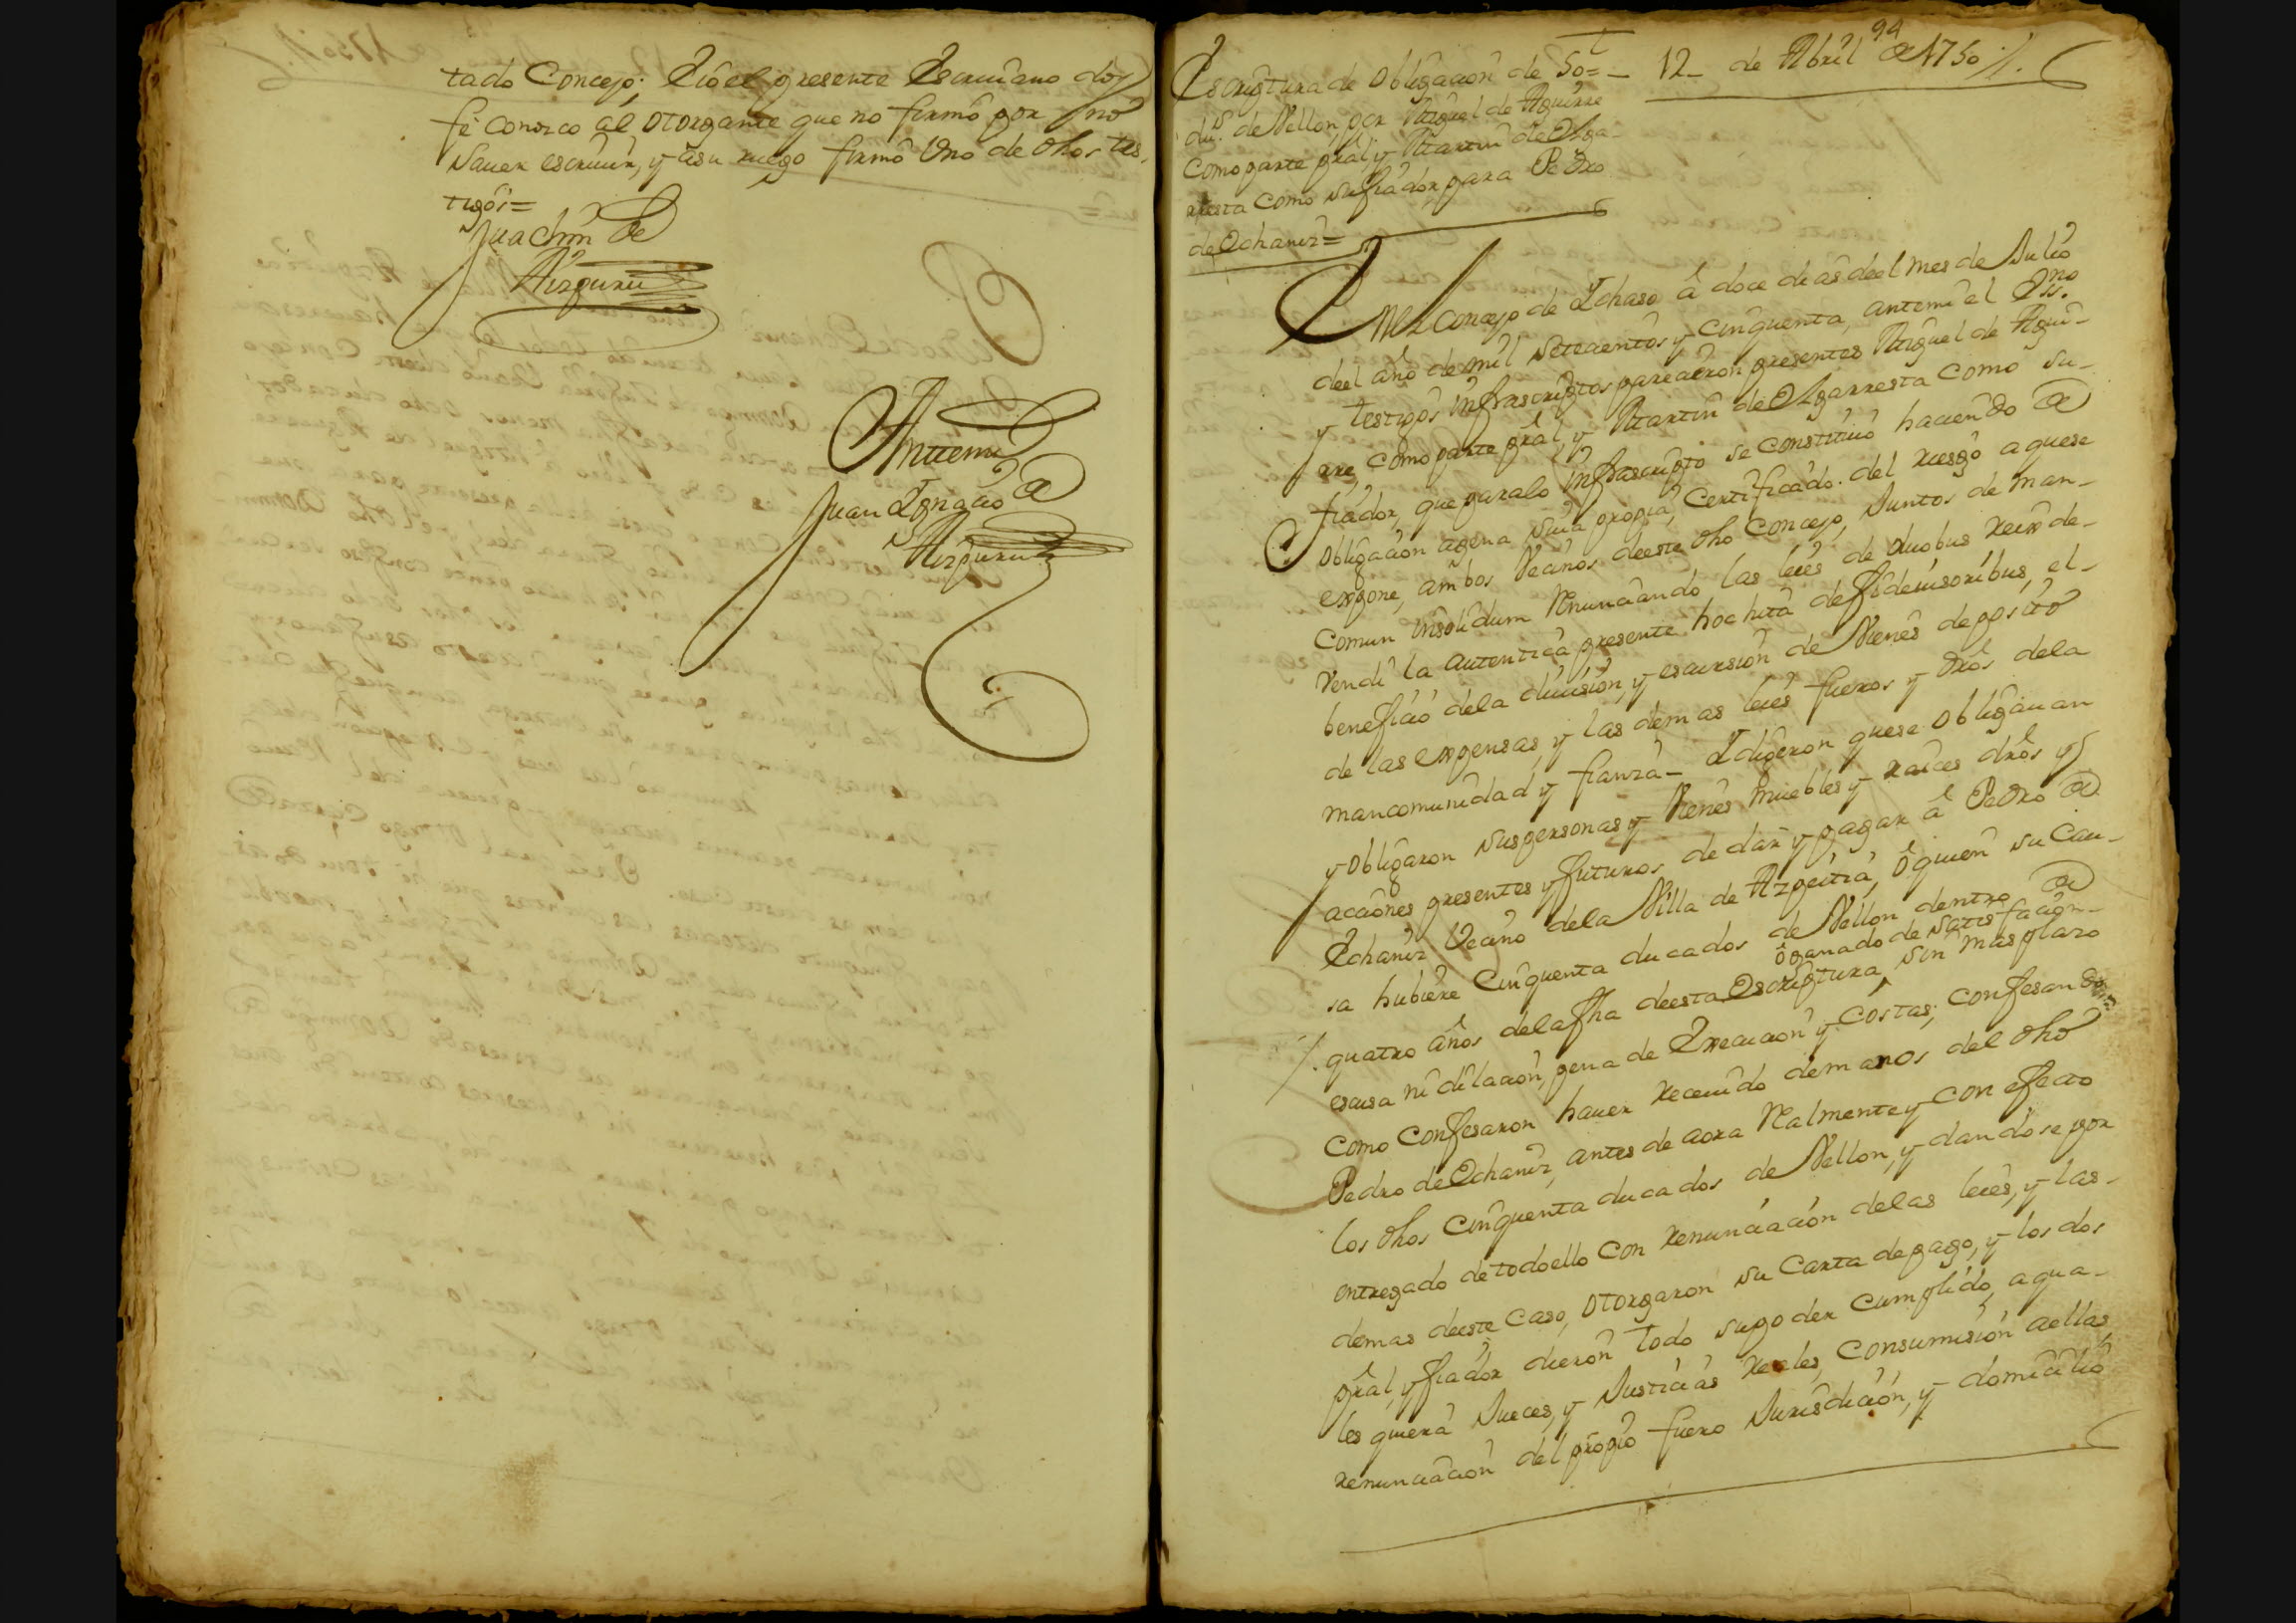 tado Concejo; Eio el presente Escriuano doy
fê conozco al otorgante que no firmô por no
sauer escriuir, y âsu ruego firmô Uno de dhos tes-
tigos=
Juachin de
Aizpuru
Anttemi
Juan Ignacio de
Aizpuru
94
Escriptura de obligacion de 50=
dus. de Vellon, por Miguel de Aguirre
como parte prãl, y Martin de Olga-
rresta como su fiador, para Pedro
de Echaniz=
12 de Abril de 1750 //.
En el concejo de Ichaso â doce dias deel mes de Julio
deel año de mil setecientos y cinquenta, antemi el Essno
y testigos infrascriptos parecieron presentes Miguel de Agui-
rre, como parte prãl, y Martin de Olgarresta como su
fiador, que para lo infrascripto se constituiô haciendo de
obligacion agena suia propia, certificado del riesgo a que se
expone, ambos Vecinos de este dho concejo, Juntos de man-
comun insolidum renunciando las leies de duobus rex de-
vendi la autentica presente hoc hita de fideiusoribus, el
beneficio dela diuision, y escursion de Vienes deposito
de las expensas, y las demas leies fueros y dros dela
mancomunidad y fianza_ Idigeron que se obligauan
y obligaron sus personas y Vienes muebles y raices dros y
acciones presentes y futuros, de dar y pagar â Pedro de
Echaniz Vecino dela Villa de Azpeitia, ô quien su cau-
sa hubiere Cinquenta ducados de Vellon dentro de
ô ganado de satisfacion
/. quatro años dela fha de esta Escriptura, sin mas plazo
escusa ni dilacion, pena de Execucion y costas; confesando
como confesaron hauer receuido de manos del dho
Pedro de Echaniz, antes de aora realmente y con efecto
los dhos cinquenta ducados de Vellon, y dandose por
entregado de todo ello con renunciacion delas leies, y las
demas de este caso, otorgaron su carta de pago, y los dos
prãl, y fiador dieron todo su poder cumplido, a qua-
les quiera Jueces, y Justicias reales, con sumision a ellas,
renunciacion del propio fuero Jurisdicion, y domicilio